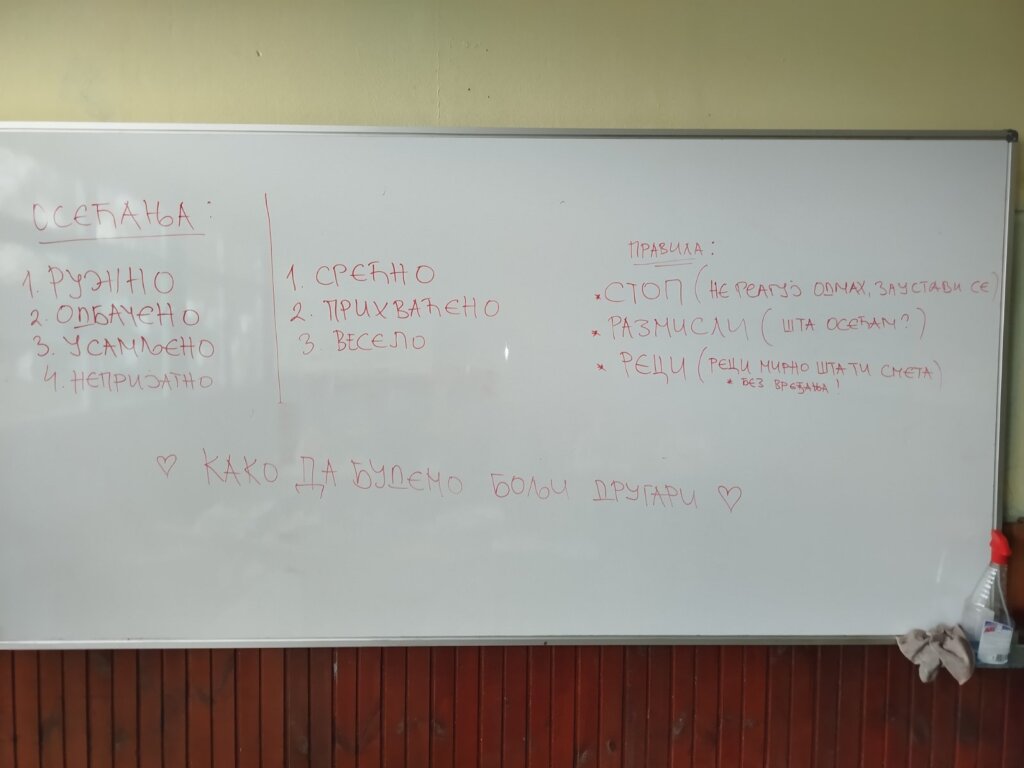 ОСЕЋАЊА:
1. РУЖНО
2. ОДБАЧЕНО
3. УСАМЉЕНО
4. НЕПРИЈАТНО
1. СРЕЋНО
2. ПРИХВАЋЕНО
3. ВЕСЕЛО
ПРАВИЛА:
* СТОП (НЕ РЕАГУЈ ОДМАХ, ЗАУСТАВИ СЕ)
* РАЗМИСЛИ (ШТА ОСЕЋАМ?)
* РЕЦИ (РЕЦИ МИРНО ШТА ТИ СМЕТА)
* БЕЗ ВРЕЂАЊА!
♡ КАКО ДА БУДЕМО БОЉИ ДРУГАРИ ♡